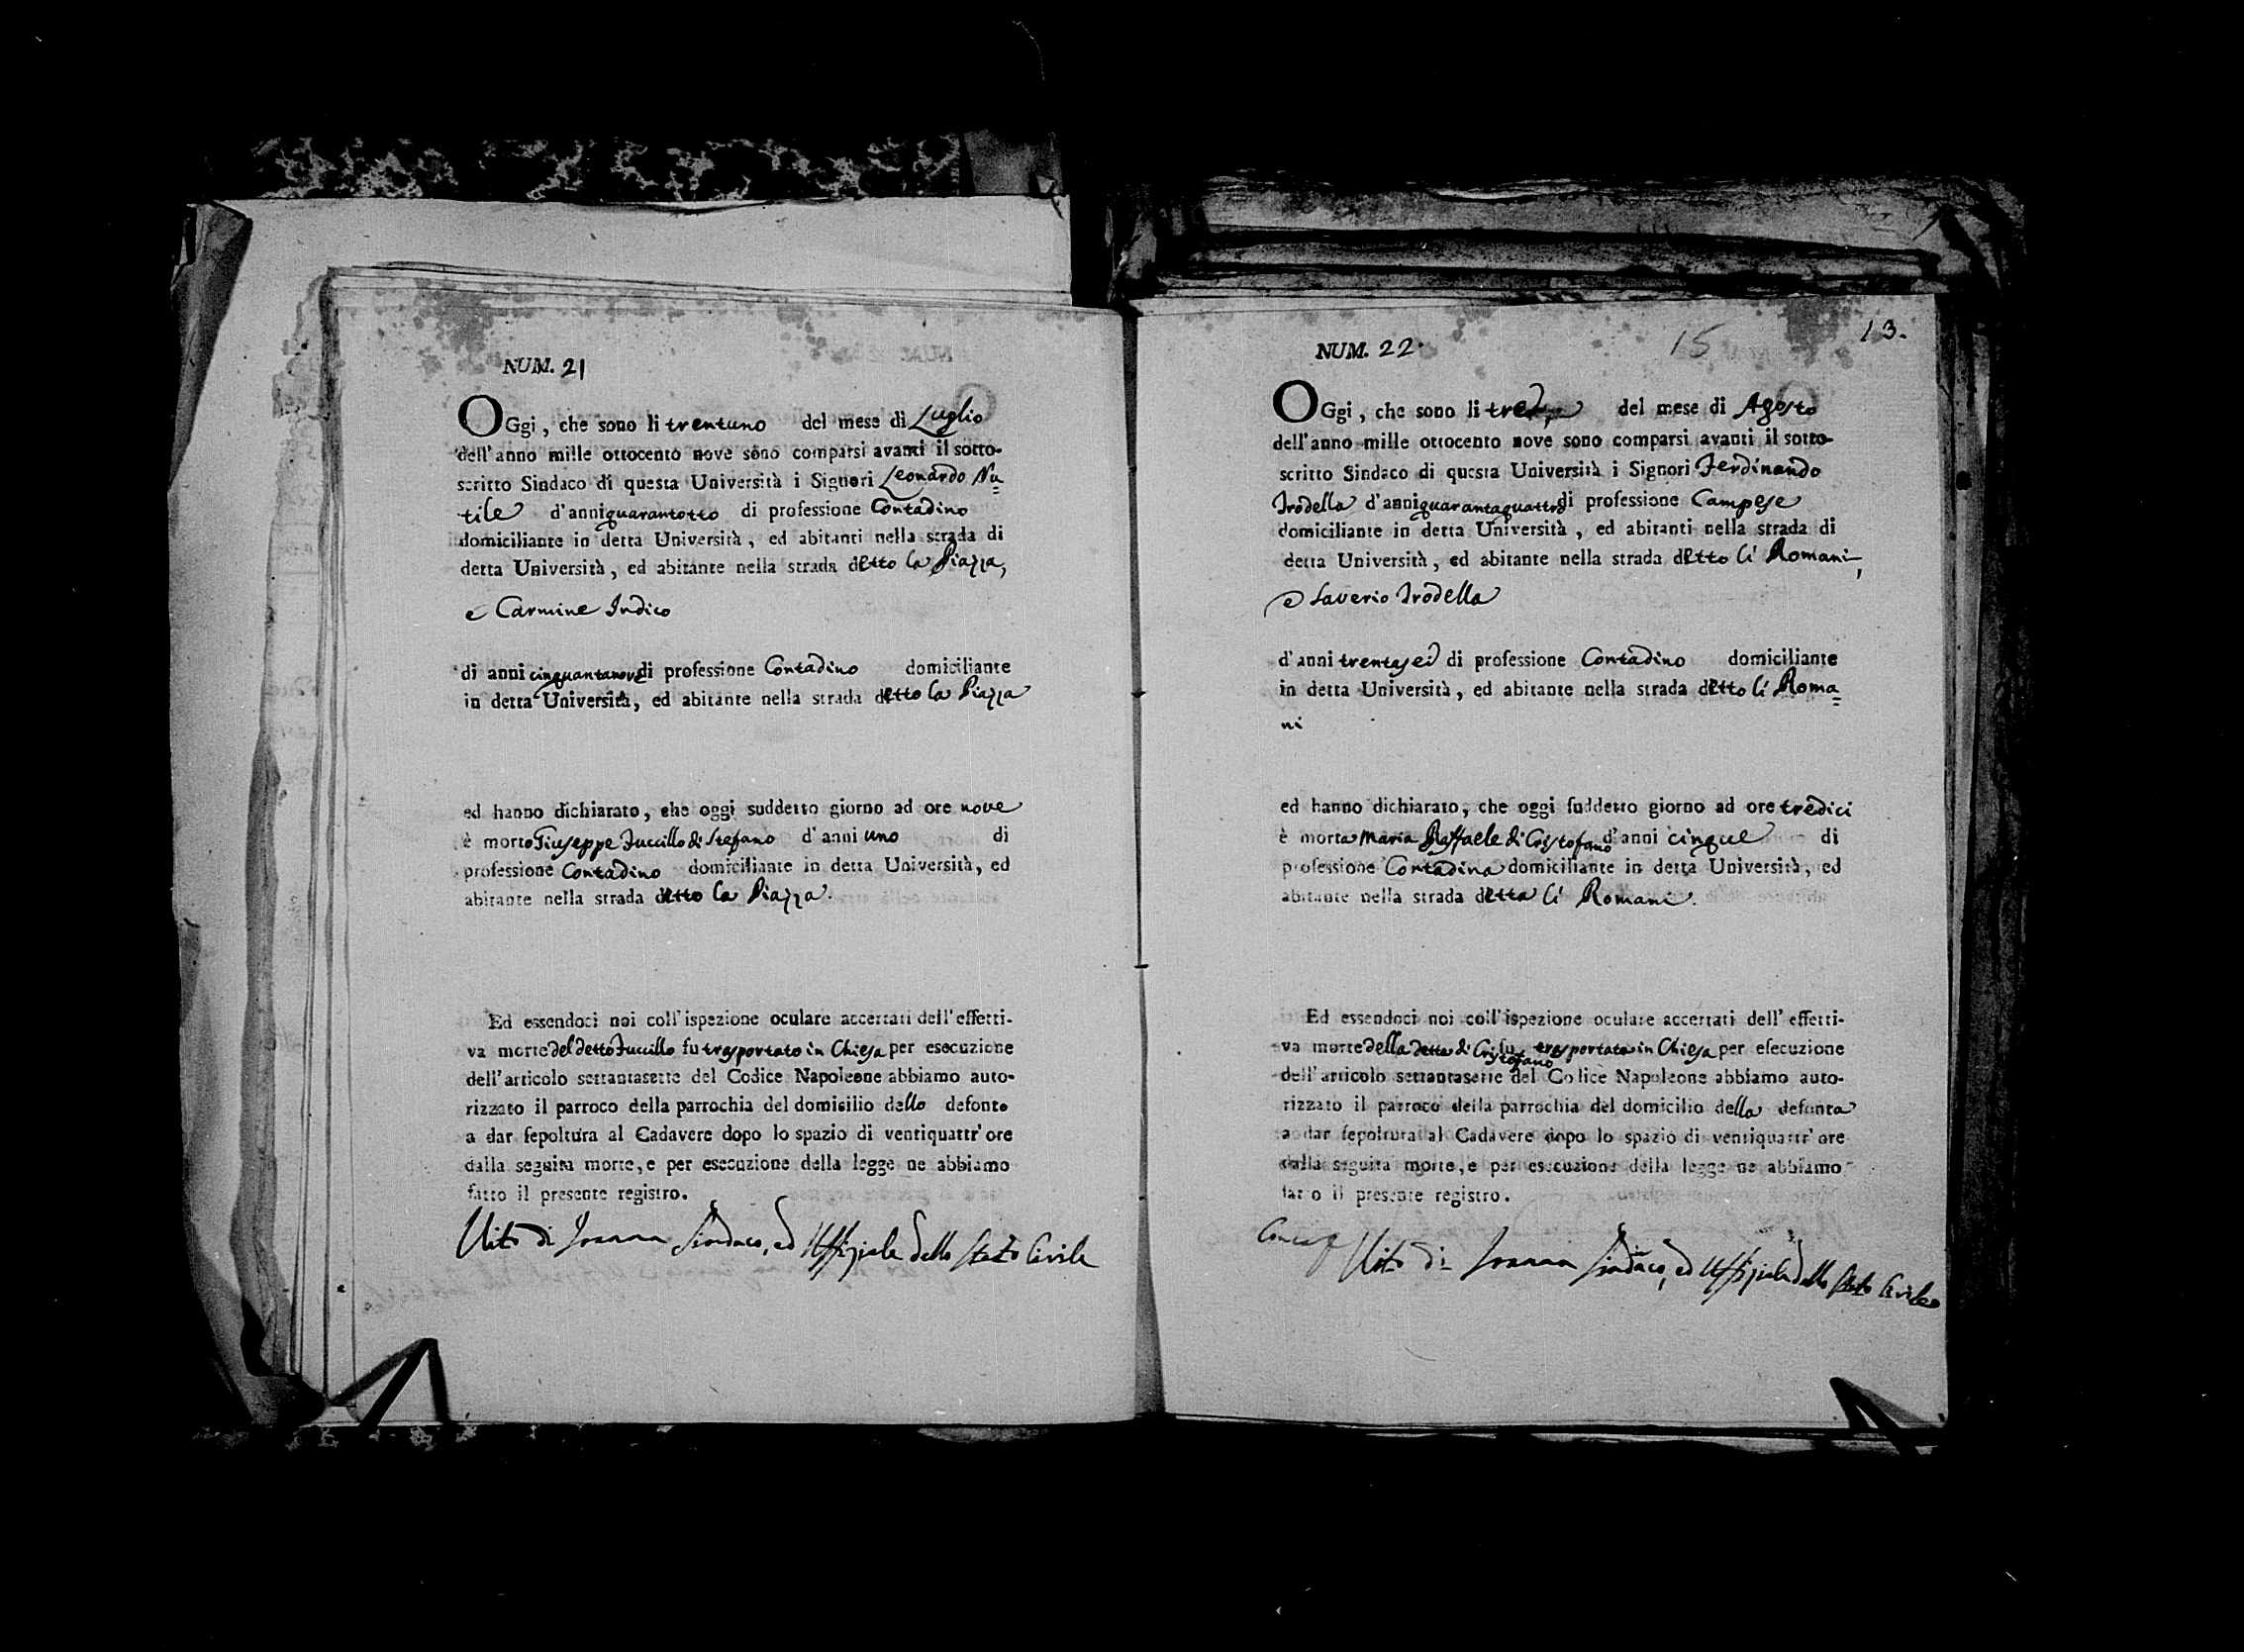 NUM. 21
OGgi, che sono li trentuno del mese di Luglio
dell'anno mille ottocento nove sono comparsi avanti il sotto-
scritto Sindaco di questa Università i Signori Leonardo Nu=
tile d'anni quarantotto di professione Contadino
domiciliante in detta Università, ed abitanti nella strada di
detta Università, ed abitante nella strada detto la Piazza,
e Carmine Indico
di anni cinquantanove di professione Contadino domiciliante
in detta Università, ed abitante nella strada detto la Piazza
ed hanno dichiarato, che oggi suddetto giorno ad ore nove
è morto Giuseppe Fuccillo di Stefano d'anni uno di
professione Contadino domiciliante in detta Università, ed
abitante nella strada detto la Piazza.
Ed essendoci noi coll'ispezione oculare accertati dell'effetti-
va morte del detto Fuccillo fu trasportato in Chiesa per esecuzione
dell'articolo settantasette del Codice Napoleone abbiamo auto-
rizzato il parroco della parrochia del domicilio dello defonto
a dar sepoltura al Cadavere dopo lo spazio di ventiquattr'ore
dalla seguita morte, e per esecuzione della legge ne abbiamo
fatto il presente registro.
Vito di Joanna Sindaco, ed Uffiziale dello Stato Civile
15 13.
NUM. 22.
OGgi, che sono li tre del mese di Agosto
dell'anno mille ottocento nove sono comparsi avanti il sotto-
scritto Sindaco di questa Università i Signori Ferdinando
Irodella d'anni quarantaquattro di professione Campese
domiciliante in detta Università, ed abitanti nella strada di
detta Università, ed abitante nella strada detto li Romani,
e Saverio Irodella
d'anni trentasei di professione Contadino domiciliante
in detta Università, ed abitante nella strada detto li Roma=
ni
ed hanno dichiarato, che oggi suddetto giorno ad ore tredici
è morta Maria Raffaele di Cristofano d'anni cinque di
professione Contadina domiciliante in detta Università, ed
abitante nella strada detta li Romani.
Ed essendoci noi coll'ispezione oculare accertati dell'effetti-
va morte della detta di Cristofano fu trasportata in Chiesa per esecuzione
dell'articolo settantasette del Codice Napoleone abbiamo auto-
rizzato il parroco della parrochia del domicilio della defonta
a dar sepoltura al Cadavere dopo lo spazio di ventiquattr'ore
dalla seguita morte, e per esecuzione della legge ne abbiamo
fatto il presente registro.
Vito di Joanna Sindaco, ed Uffiziale dello Stato Civile